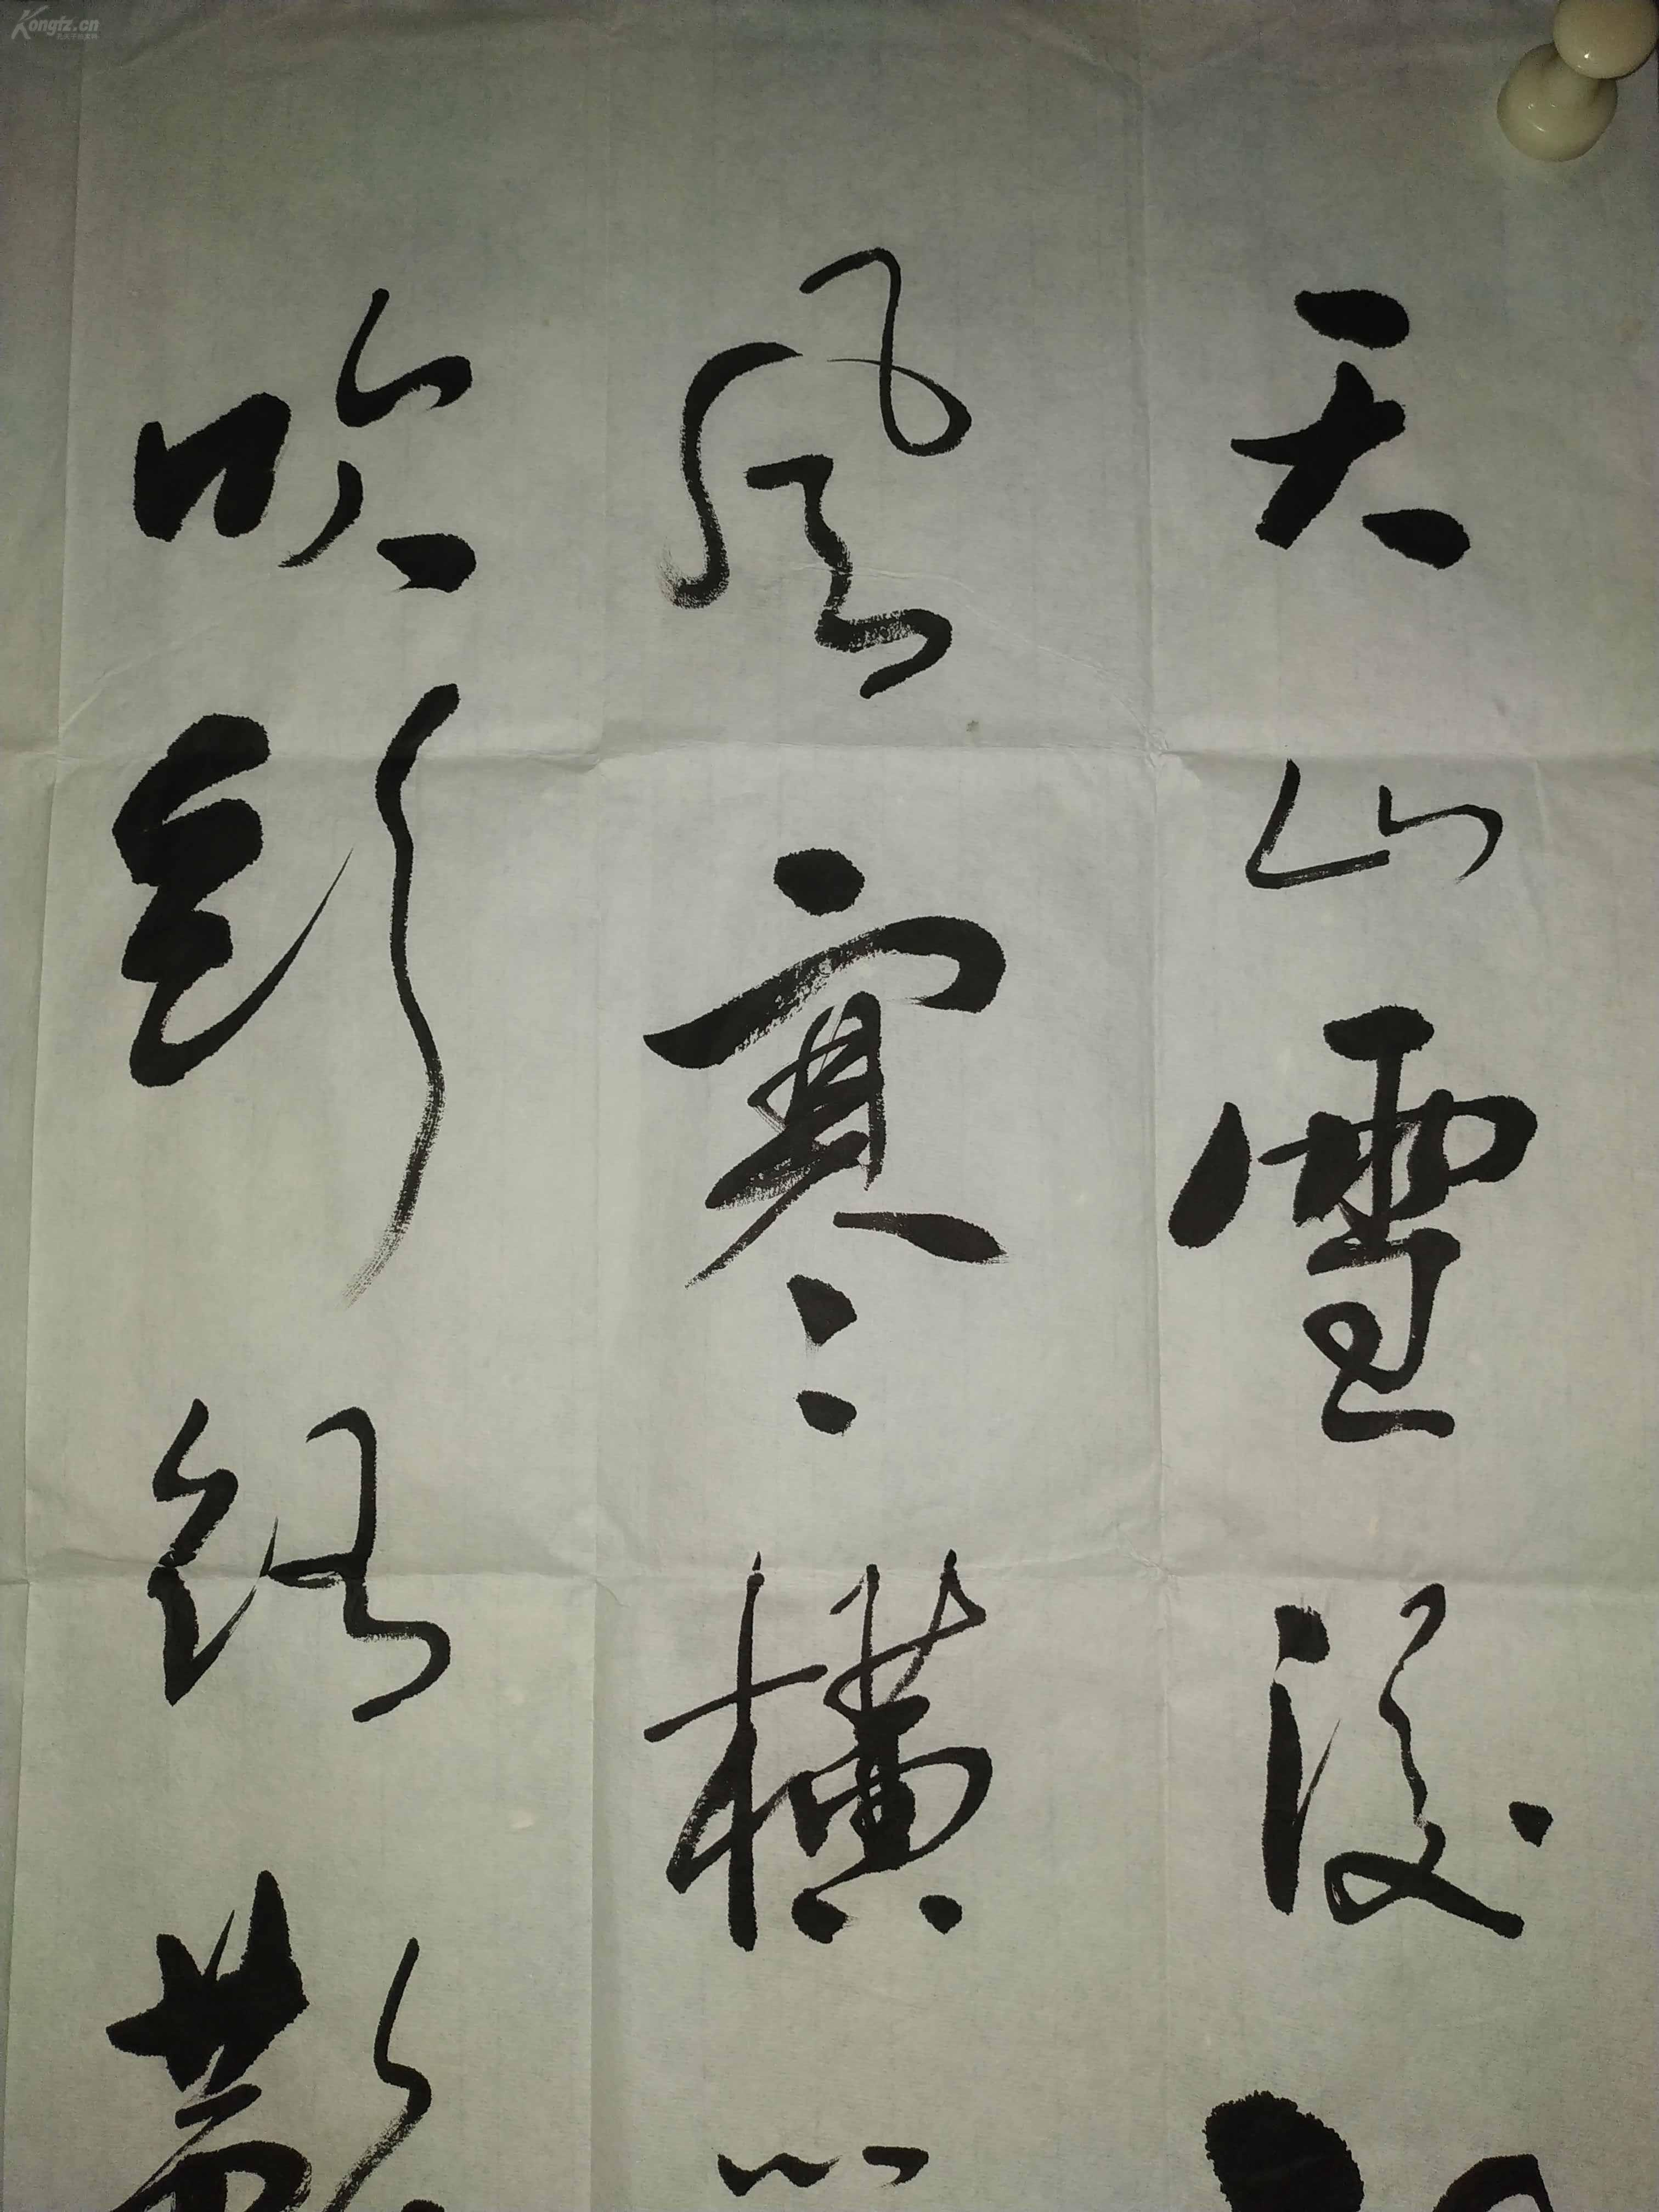 Kongfz.cn
天山雪後
風寒橫
吹行路難